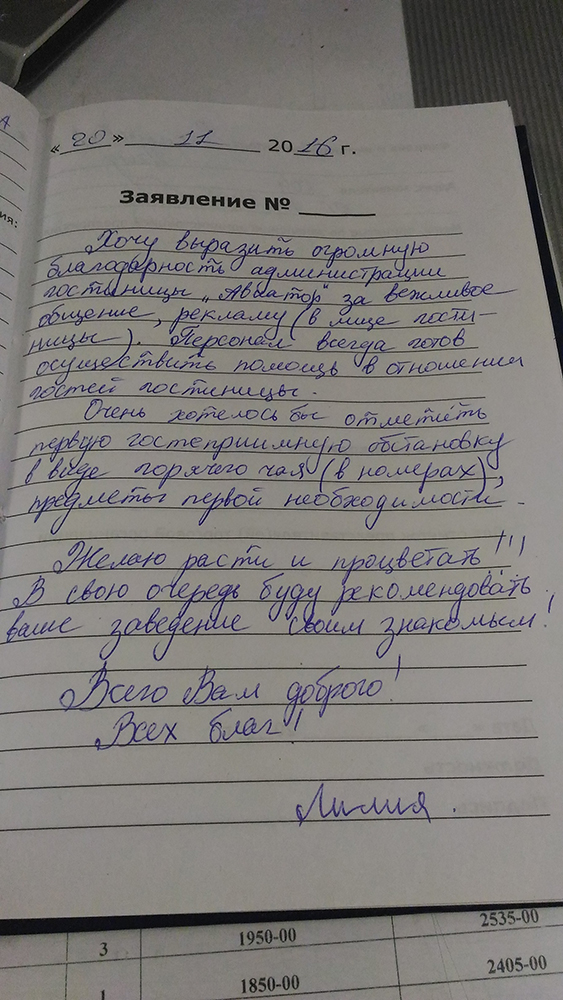 «20» 11 2016 г.
Заявление № ______
Хочу выразить огромную
благодарность администрации
гостиницы „Авиатор" за вежливое
общение, рекламу (в лице гости-
ницы). Персонал всегда готов
осуществить помощь в отношении
гостей гостиницы.
Очень хотелось бы отметить
первую гостеприимную обстановку
в виде горячего чая (в номерах),
предметы первой необходимости.
Желаю расти и процветать!!!
В свою очередь буду рекомендовать
ваше заведение своим знакомым!
Всего Вам доброго!
Всех благ!
Лилия
ия:
3 1950-00 2535-00
1 1850-00 2405-00